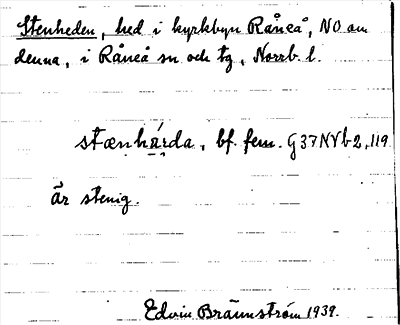 Stenheden, hed i kyrkbyn Råneå, NO om
denna, i Råneå sn och tg, Norrb. l.
stænhä́rda, bf. fem. G37NVb2,119
Är stenig.
Edvin Brännström 1939.